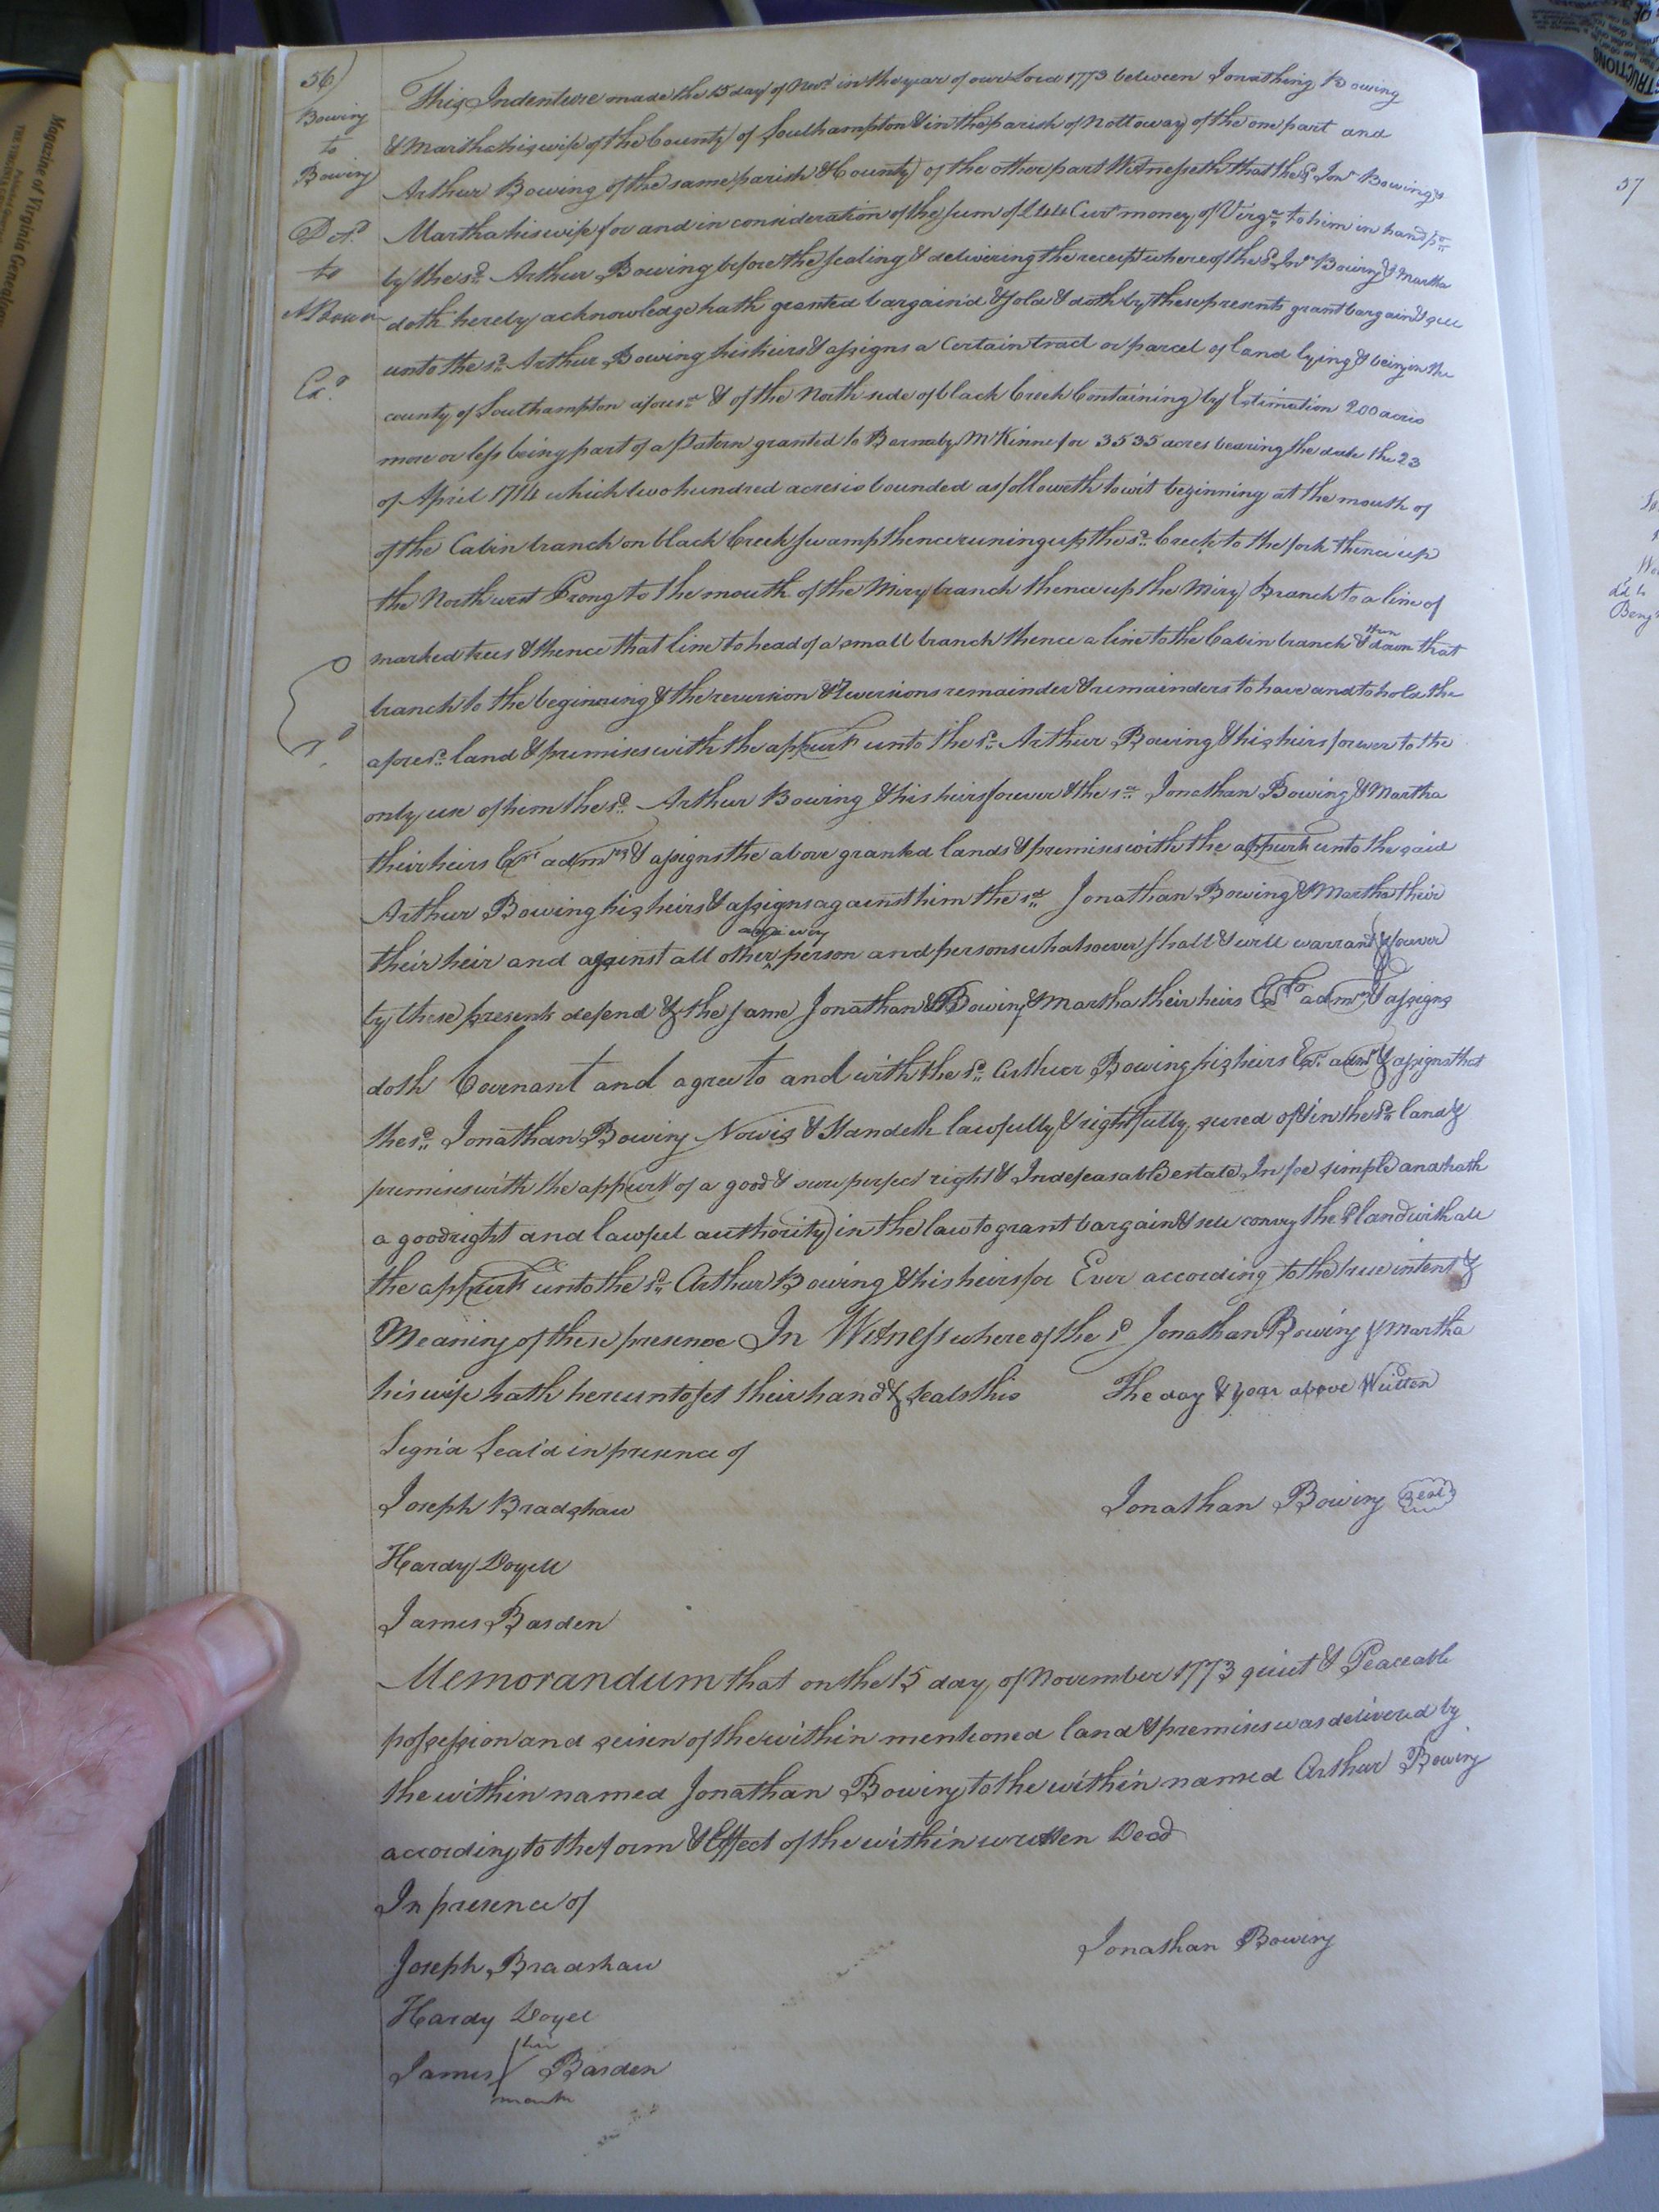 56)
Bowing
to
Bowing
Ded
to
A Bowin
Exd
This Indenture made the 15 day of Novr in the year of our Lord 1773 between Jonathing Bowing
& Martha his wife of the County of Southampton & in the parish of Nottoway of the one part and
Arthur Bowing of the same parish & County of the other part Witnesseth that the sd Jona Bowing &
Martha his wife for and in consideration of the sum of £44 Curt money of Virga to him in hand pd
by the sd Arthur Bowing before the sealing & delivering the receipt whereof the sd Jona Bowing & Martha
doth hereby acknowledge hath granted bargain'd & sold & doth by these presents grant bargain & sell
unto the sd Arthur Bowing his heirs & assigns a Certain tract or parcel of land lying & being in the
county of Southampton aforesd & of the North side of black Creek Containing by Estimation 200 acres
more or less being part of a Patern granted to Barnaby McKinne for 3535 acres bearing the date the 23
of April 1714 which two hundred acres is bounded as followeth to wit beginning at the mouth of
of the Cabin branch on black Creek swamp thence runing up the sd Creek to the fork thence up
the North west Prong to the mouth of the Miery branch thence up the Miry Branch to a line of
marked trees & thence that line to head of a small branch thence a line to the Cabin branch & then down that
branch to the beginning & the reversion & Reversions remainder & remainders to have and to hold the
aforesd land & premises with the appurts unto the sd Arthur Bowing & his heirs forever to the
only use of him the sd Arthur Bowing & his heirs forever & the sd Jonathan Bowing & Martha
their heirs Exrs admrs & assigns the above granted lands & premises with the appurts unto the said
Arthur Bowing his heirs & assigns against him the sd Jonathan Bowing & Martha their
their heir and against all other person and persons whatsoever shall & will warrant & forever
by these presents defend & the same Jonathan & Bowing & Martha their heirs Exrs admrs & assigns
doth Covenant and agree to and with the sd Arthur Bowing his heirs Exrs admrs & assigns that
the sd Jonathan Bowing Now is & Standeth lawfully & rightfully seized of & in the sd land &
premises with the appurts of a good & sure perfect right & Indefeasable estate In fee simple and hath
a good right and lawful authority in the law to grant bargain & sell convey the sd land with all
the appurts unto the sd Arthur Bowing & his heirs for Ever according to the true intent &
Meaning of these presence In Witness whereof the sd Jonathan Bowing & Martha
his wife hath hereunto set their hand & seals this The day & year above Written
Sign'd Seal'd in presence of
Joseph Bradshaw Jonathan Bowing Seal
Hardy Doyell
James Barden
Memorandum that on the 15 day of November 1773 quiet & Peaceable
possession and seisen of the within mentioned land & premises was delivered by
the within named Jonathan Bowing to the within named Arthur Bowing
according to the form & Effect of the within written Deed
In presence of
Joseph Bradshaw Jonathan Bowing
Hardy Doyel
his
James Barden
mark
57
Magazine of Virginia Genealogy